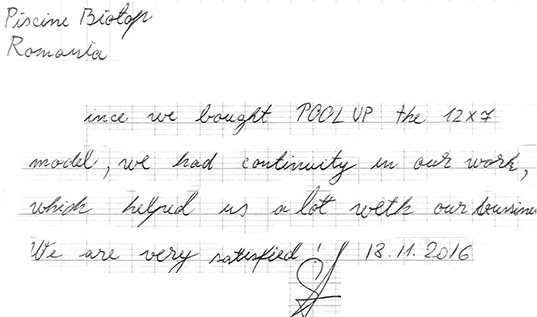 Piscine Biotop
Romania
ince we bought POOL UP the 12x7
model, we had continuity in our work,
which helped us a lot weth our bussines
We are very satisfied! 18.11.2016